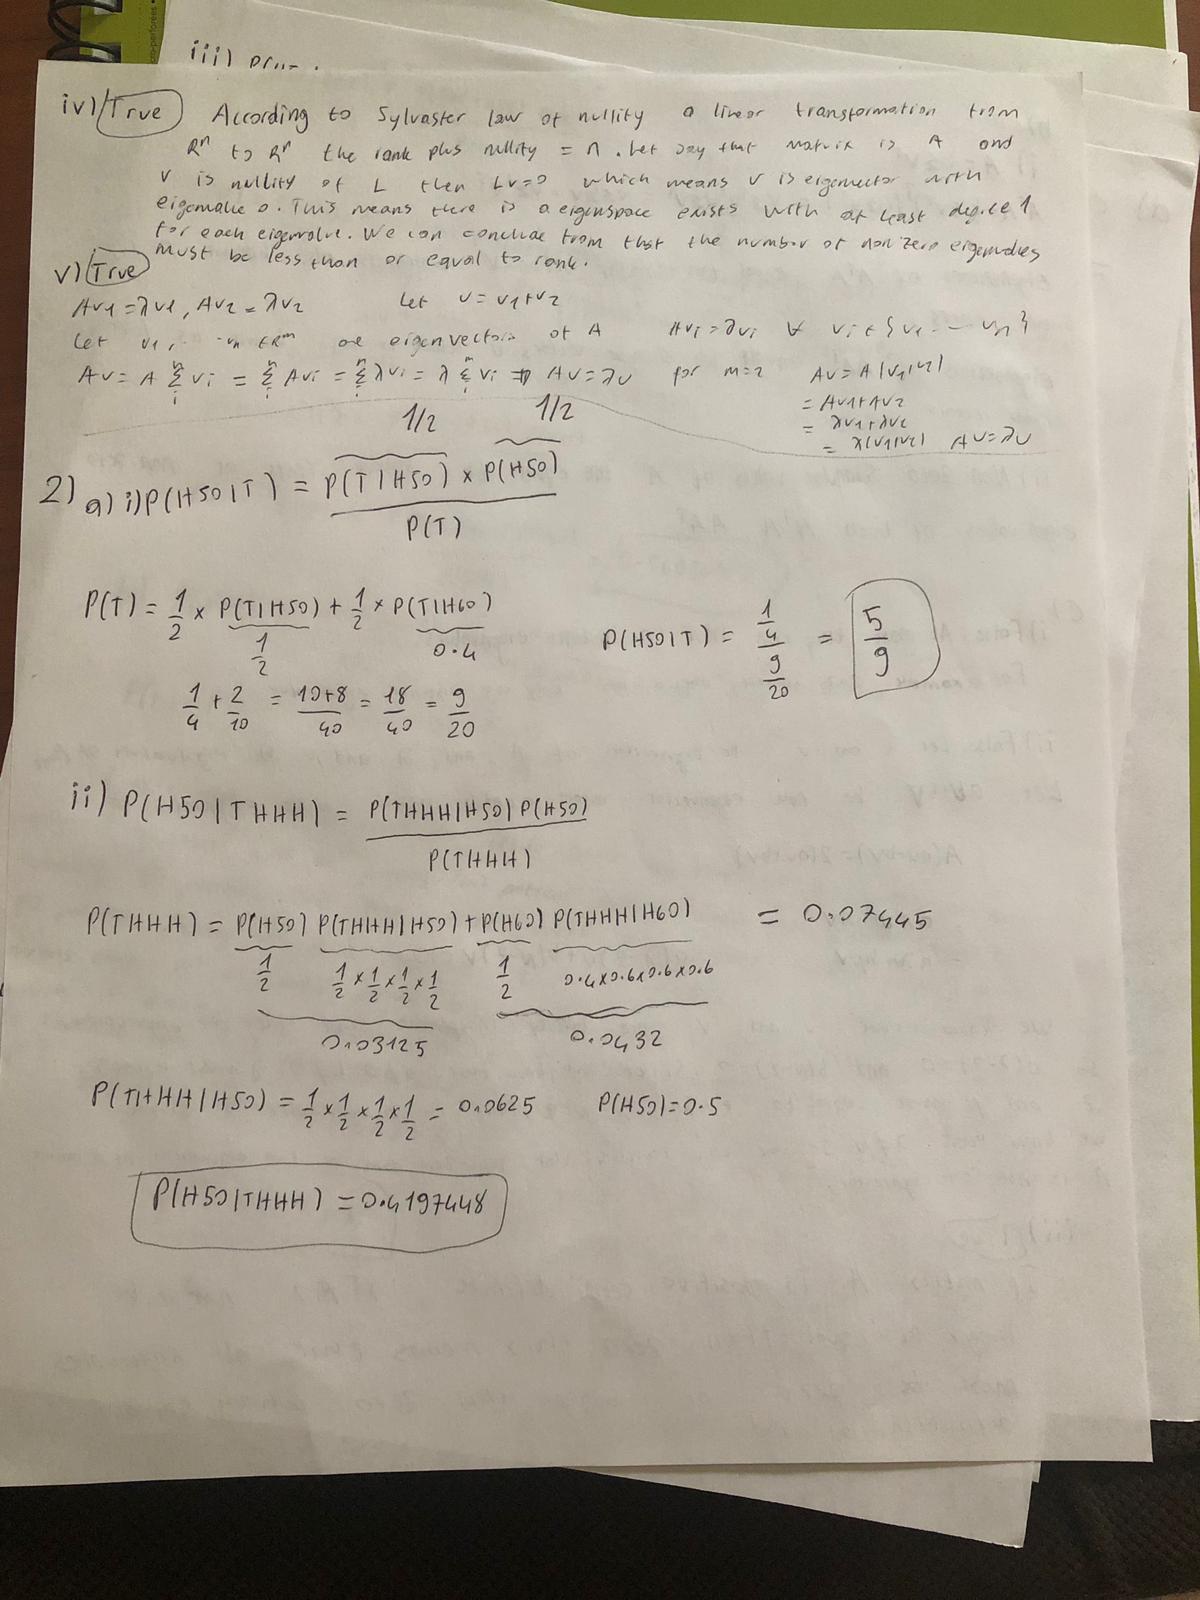 co-perforées
iii)
iv) True According to Sylvaster law of nullity a linear transformation from
Rⁿ to Rⁿ the rank plus nullity = n. Let say that matrix is A and
v is nullity of L then Lv=0 which means v is eigenvector with
eigenvalue 0. This means there is a eigenspace exists with at least degree 1
for each eigenvalue. We can conclude from that the number of non zero eigenvalues
must be less than or equal to rank.
v) True
Av1 = λv1, Av2 = λv2 Let v = v1+v2
Let v1, ... vn ∈ Rᵐ are eigenvectors of A Avi = λvi ∀ vi ∈ {v1 --- vn}
Av = A Σ vi = Σ Avi = Σ λvi = λ Σ vi ⇒ Av = λv for m=2 Av = A(v1+v2)
= Av1+Av2
= λv1+λv2
= λ(v1+v2) Av=λv
1/2 1/2
2) a) i) P(H50|T) = P(T|H50) × P(H50) / P(T)
P(T) = 1/2 × P(T|H50) + 1/2 × P(T|H60)
1/2 0.4
P(H50|T) = 1/4 / 9/20 = 5/9
1/4 + 2/10 = 10+8/40 = 18/40 = 9/20
ii) P(H50|THHH) = P(THHH|H50) P(H50) / P(THHH)
P(THHH) = P(H50) P(THHH|H50) + P(H60) P(THHH|H60) = 0.07445
1/2 1/2 × 1/2 × 1/2 × 1/2 1/2 0.4×0.6×0.6×0.6
0.03125 0.0432
P(THHH|H50) = 1/2 × 1/2 × 1/2 × 1/2 = 0.0625 P(H50)=0.5
P(H50|THHH) = 0.4197448